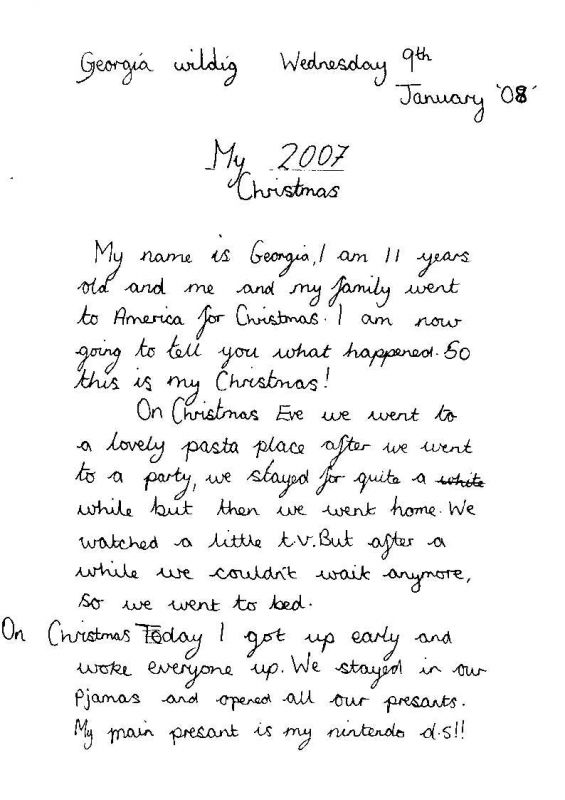 Georgia wildig Wednesday 9th
January '08'
My 2007
Christmas
My name is Georgia, I am 11 years
old and me and my family went
to America for Christmas. I am now
going to tell you what happened. So
this is my Christmas!
On Christmas Eve we went to
a lovely pasta place after we went
to a party, we stayed for quite a white
while but then we went home. We
watched a little t.v. But after a
while we couldn't wait anymore,
so we went to bed.
On Christmas Today I got up early and
woke everyone up. We stayed in our
Pjamas and opened all our presants.
My main presant is my nintendo d.s!!